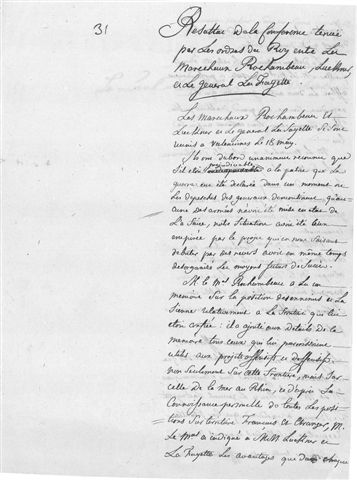 31
Resultat de la Conference tenüe
par les ordres du Roy entre Les
Marechaux Rochambeau, Luckner
et Le General La Fayette
Les Marechaux Rochambeau et
Luckner et Le General La Fayette se sont
reunis a Valenciennes le 18 may.
Ils ont dabord unanimement reconnu que
sil etoit a la patrie que la
guerre eut été declarée dans un moment ou
les depeches des generaux demontroient qu'au-
cune des armées navoit été mise en etat de
la faire, notre situation avoit été bien
empirée par le que en nous faisant
debuter par des revers avoit en meme temps
desorganisé les moyens futurs de succès.
M. le Mal Rochambeau a lu un
memoire sur la position des ennemis et la
sienne relativement a la frontiere qui lui
etoit confiée: il a ajouté aux details de ce
memoire tous ceux qui lui paroissoient
utils aux projets offensifs et deffensifs,
non seulement sur cette frontiere, mais sur
celle de la mer au Rhin, et d'après la
Connoissance personnelle de toutes les posi-
tions sur territoire Francois et Etranger, M.
le Mal a indiqué a MM. Luckner et
La Fayette les avantages que dans chaque